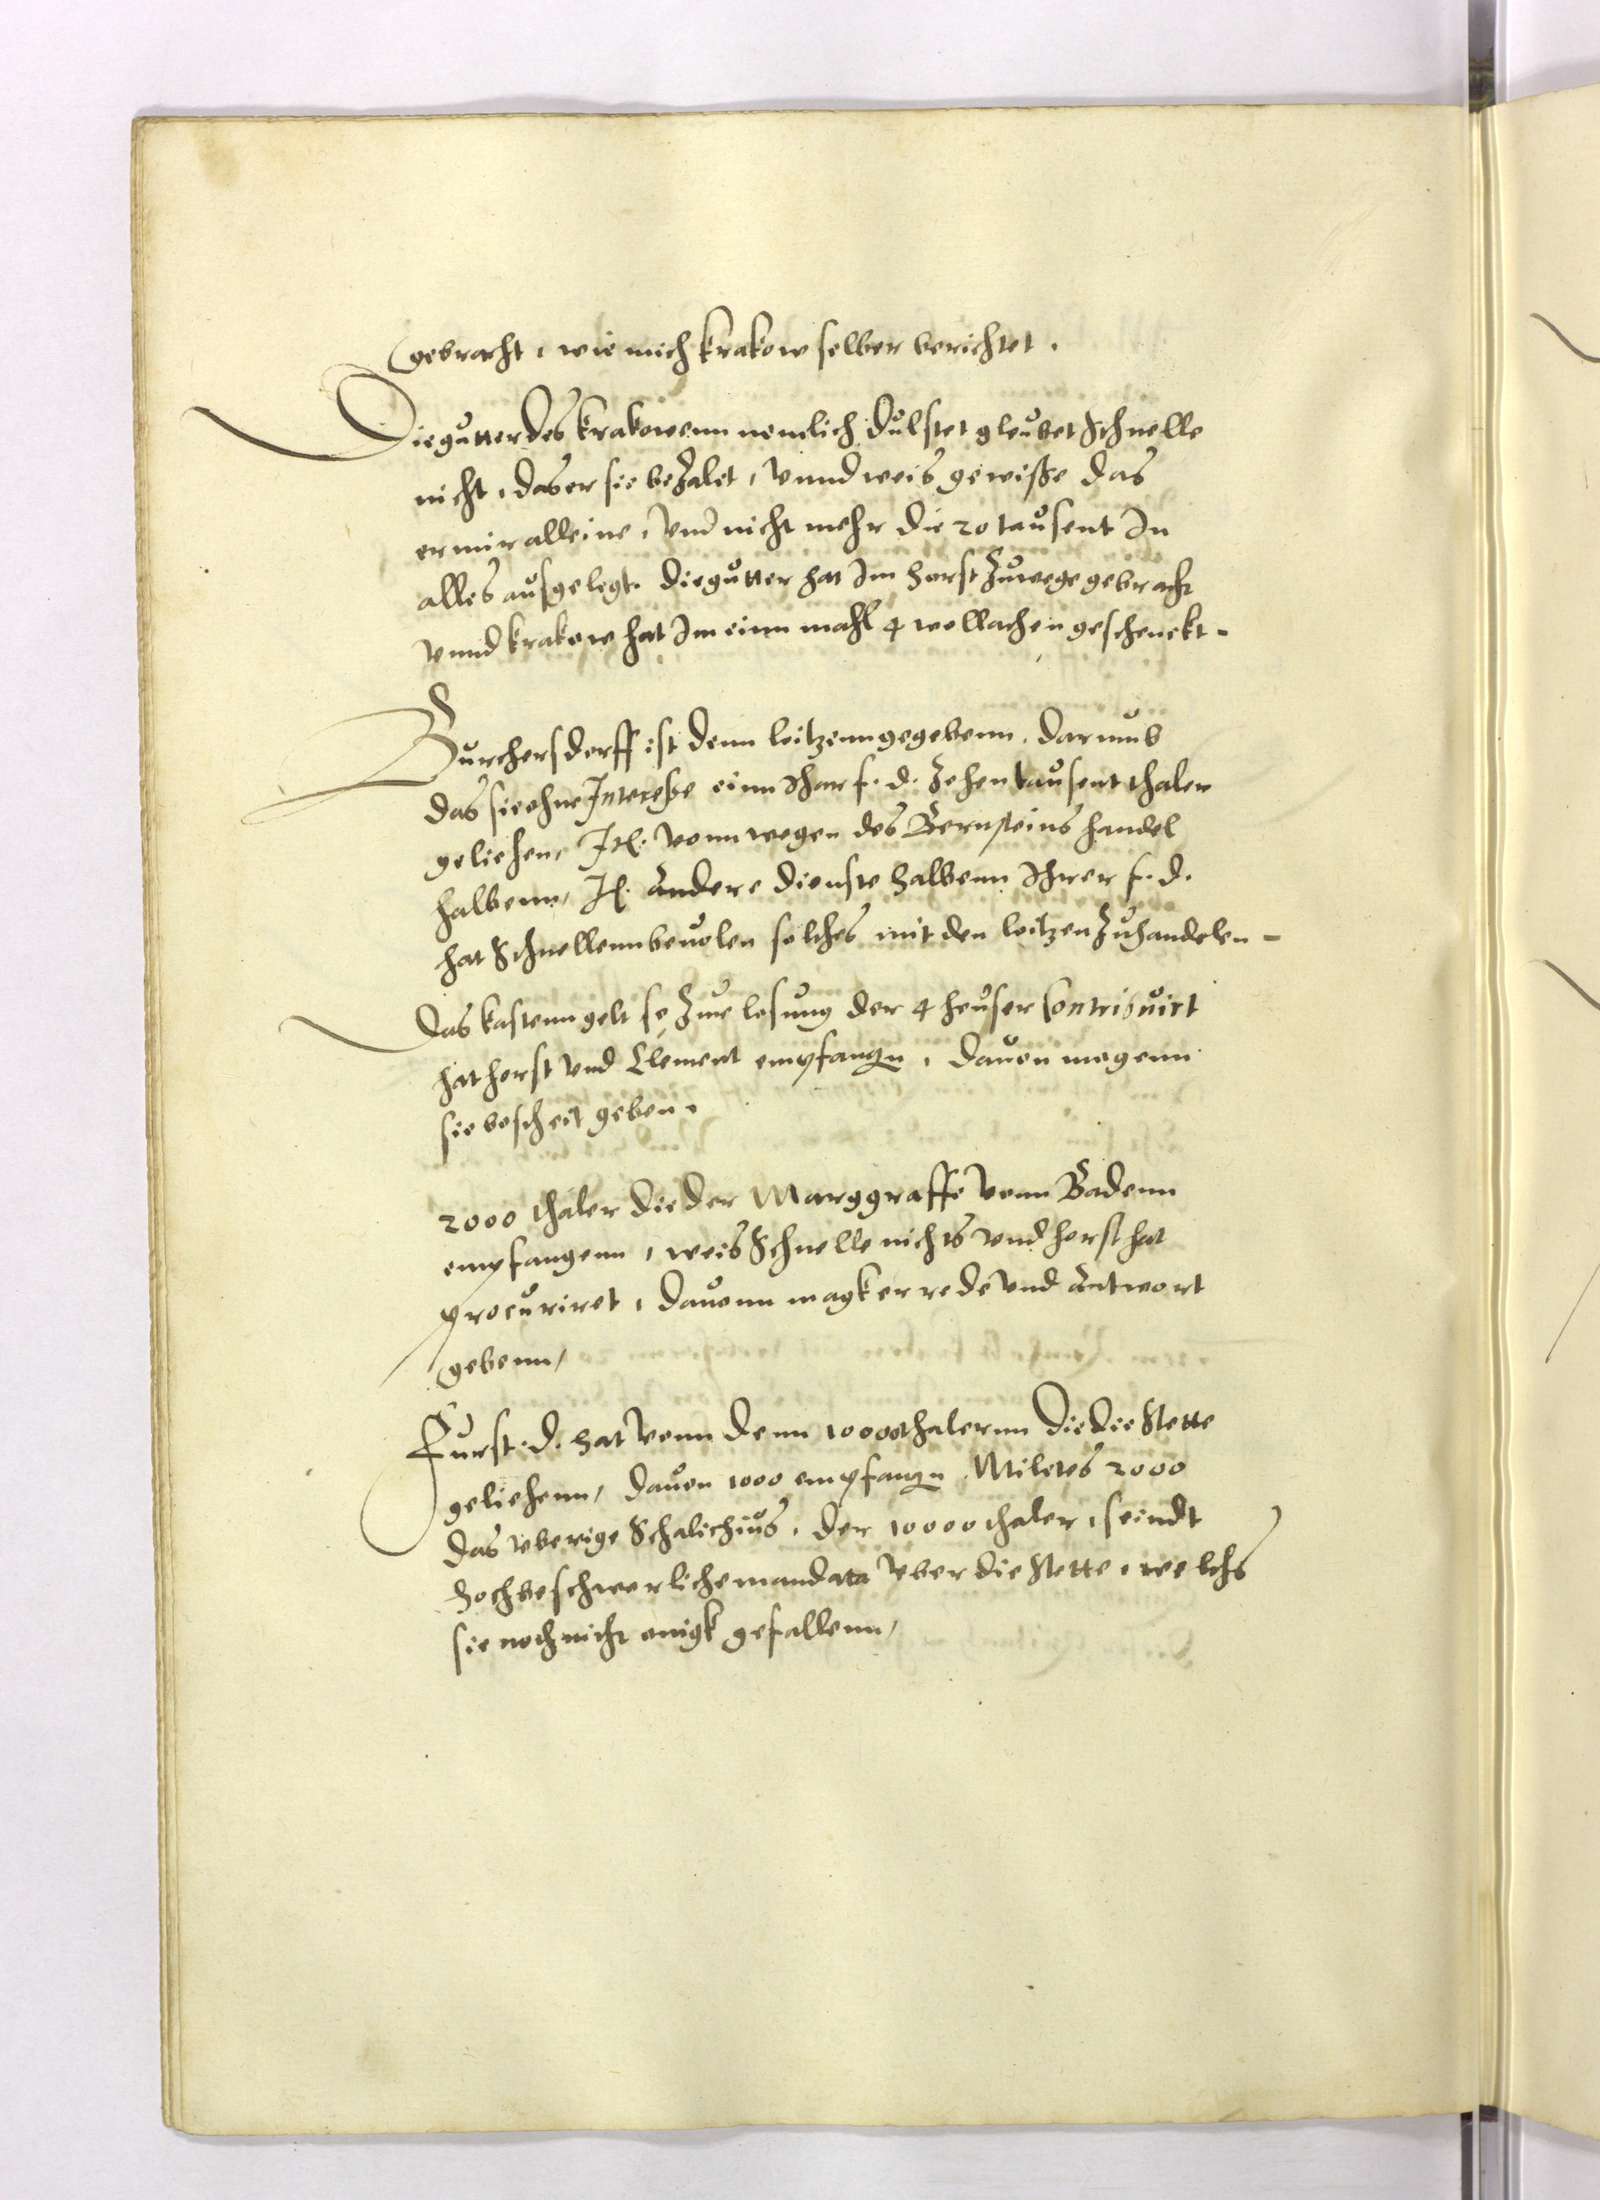 gebracht, wie mich krakow selber berichtet.
Die gutter des krakowenn nemlich Dulstet gleubet Schnelle
nicht, das er sie bezalet, vnnd weis gewisse das
er mir alleine, vnd nicht mehr die 20 tausent In
alles ausgelegt. Die gutter hat Im horst zuwege gebracht
vnnd krakow hat Im einn mahl 4 wollachen geschenckt -
Burchersdorff ist denn loitzenn gegebenn, darumb
das sie ohne Interesse einn Ihar f. d. zehen tausent thaler
geliehen, It. vonn wegen des Bernsteins handel
halbenn, It. andere dienste halbenn Ihrer f. d.
hat Schnellenn beuolen solches mit den loitzen zuhandelen -
Das kastenn gelt so zue losung der 4 heuser contribuirt
hat horst vnd Clement empfangn, dauon mogenn
sie bescheit geben.
2000 thaler die der Marggraffe vonn Badenn
empfangenn, weis Schnelle nichts vnd horst hat
procuriret, dauonn magk er rede vnd antwort
gebenn,
Furst. d. hat vonn denn 10000 thalernn die die Stette
geliehenn, dauon 1000 empfangn Miletes 2000
das vberige Schalichius. der 10000 thaler, seindt
hochbeschwerliche mandata vber die Stette, welchs
sie noch nicht einigk gefallenn,